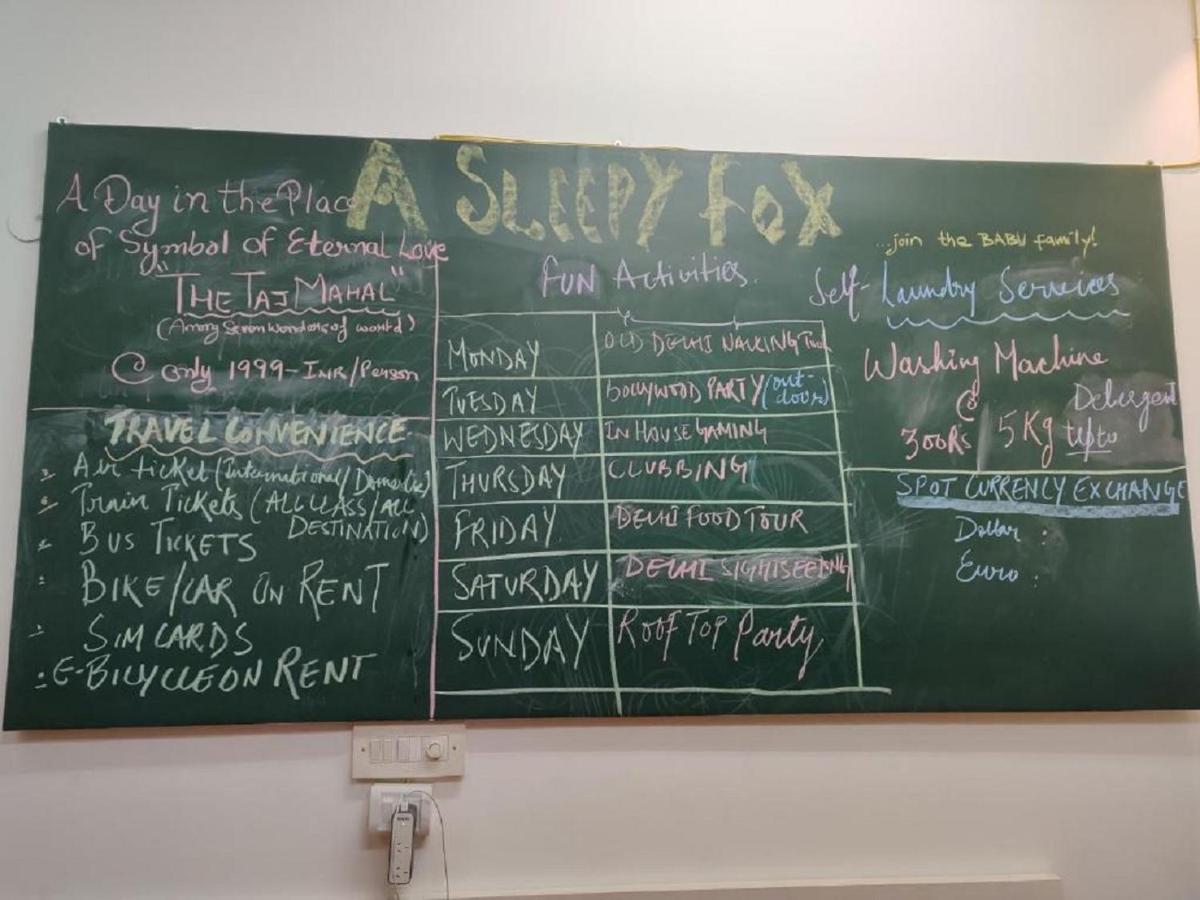 A SLEEPY FOX
A Day in the Place
of Symbol of Eternal Love
"THE TAJ MAHAL"
(Among Seven wonders of world)
@ only 1999-INR/Person
TRAVEL CONVENIENCE
Air ticket (International/Domestic)
Train Tickets (ALL CLASS/ALL
DESTINATION)
BUS TICKETS
BIKE/CAR ON RENT
SIM CARDS
E-BICYCLE ON RENT
FUN Activities.
MONDAY OLD DELHI WALKING Tour
TUESDAY BOLLYWOOD PARTY (out-
door)
WEDNESDAY IN HOUSE GAMING
THURSDAY CLUBBING
FRIDAY DELHI FOOD TOUR
SATURDAY DELHI SIGHTSEEING
SUNDAY ROOF TOP Party
...join the BABU family!
Self-Laundry Services
Washing Machine
@ Detergent
300Rs 5Kg upto
SPOT CURRENCY EXCHANGE
Dollar :
Euro :